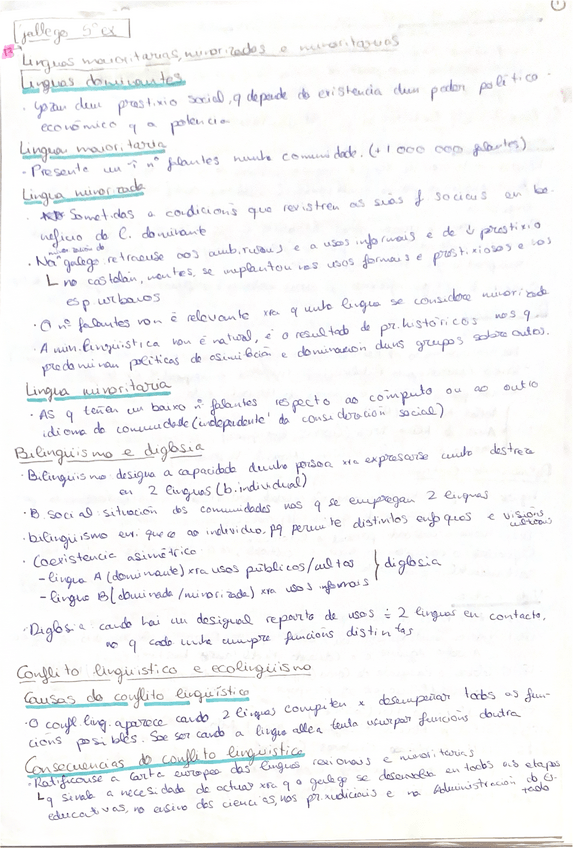 1
gallego 5º ex
Linguas maioritarias, minorizadas e minoritarias
Linguas dominantes
· gozan dun prestixio social, q depende da existencia dun poder político
económico q a potencia
Lingua maioritaria
· Presenta un ↑ nº falantes nunha comunidade. (+1 000 000 falantes)
Lingua minorizada
· Sometidas a condicións que restrinxen as suas f sociais en be-
neficio da C. dominante
· galego retraeuse aos amb. rurais e a usos informais e de ↓ prestixio
no castelán, mentres, se implantou nos usos formais e prestixiosos e nos
esp urbanos
· O nº falantes non é relevante xra q unha lingua se considere minorizada
· A min. lingüística non é natural, é o resultado de pr. históricos nos q
predominan políticas de asimilación e dominación duns grupos sobre outros.
Lingua minoritaria
· As q teñen un baixo nº falantes respecto ao cómputo ou ao outro
idioma da comunidade (independente' da consideración social)
Bilinguismo e diglosia
· Bilinguismo designa a capacidade dunha persoa xra expresarse cunha destreza
en 2 linguas (b. individual)
· B social situación das comunidades nas q se empregan 2 linguas
· bilinguismo enriquece ao individuo, pq permite distintos enfoques e visións
· Coexistencia asimétrica
- lingua A (dominante) xra usos públicos/cultos
- lingua B (dominada/minorizada) xra usos informais } diglosia
· Diglosia cando hai un desigual reparto de usos ÷ 2 linguas en contacto,
no q cada unha cumpre funcións distintas
Conflito lingüístico e ecolingüismo
Causas do conflito lingüístico
· O confl. ling. aparece cando 2 linguas compiten x desempeñar todas as fun-
cións posibles. Soe ser cando a lingua allea tenta usurpar funcións doutra
Consecuencias do conflito lingüístico
· Ratificouse a Carta europea das linguas rexionais e minoritarias
q sinala a necesidade de actuar xra q o galego se desenvolva en todas as etapas
educativas, no ensino das ciencias, nos pr. xudiciais e na Administración do Es-
tado